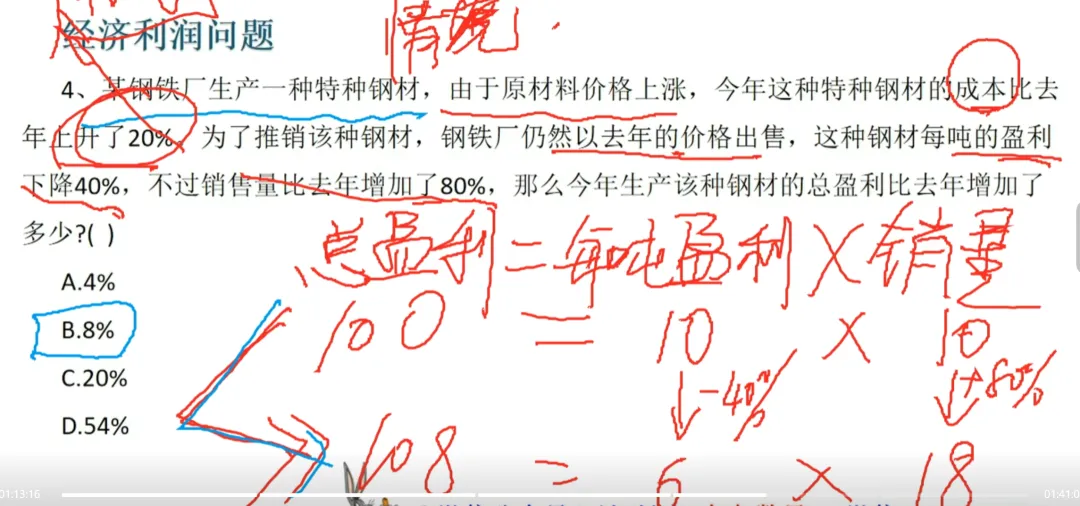 情境
经济利润问题
4、某钢铁厂生产一种特种钢材，由于原材料价格上涨，今年这种特种钢材的成本比去
年上升了20%，为了推销该种钢材，钢铁厂仍然以去年的价格出售，这种钢材每吨的盈利
下降40%，不过销售量比去年增加了80%，那么今年生产该种钢材的总盈利比去年增加了
多少?( )
总盈利=每吨盈利×销量
A.4%
B.8%
100 = 10 × 10
C.20%
↓-40% ↓+80%
D.54%
108 = 6 × 18
01:13:16 01:41:0